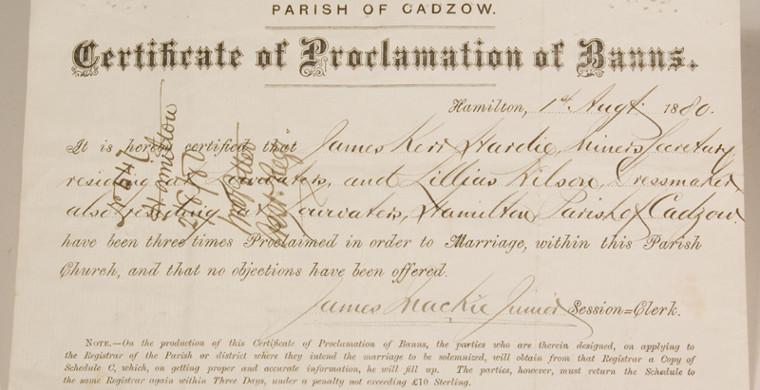 PARISH OF CADZOW.
Certificate of Proclamation of Banns.
Hamilton, 1st Augt 1880.
It is hereby certified that James Keir Hardie, Miners Secretary
residing at, and Lillias Wilson, Dressmaker
also residing at, Hamilton, Parish of Cadzow
have been three times Proclaimed in order to Marriage, within this Parish
Church, and that no objections have been offered.
James Mackie Junior Session=Clerk.
NOTE.—On the production of this Certificate of Proclamation of Banns, the parties who are therein designed, on applying to
the Registrar of the Parish or district where they intend the marriage to be solemnized, will obtain from that Registrar a Copy of
Schedule C, which, on getting proper and accurate information, he will fill up. The parties, however, must return the Schedule to
the same Registrar again within Three Days, under a penalty not exceeding £10 Sterling.
Hamilton